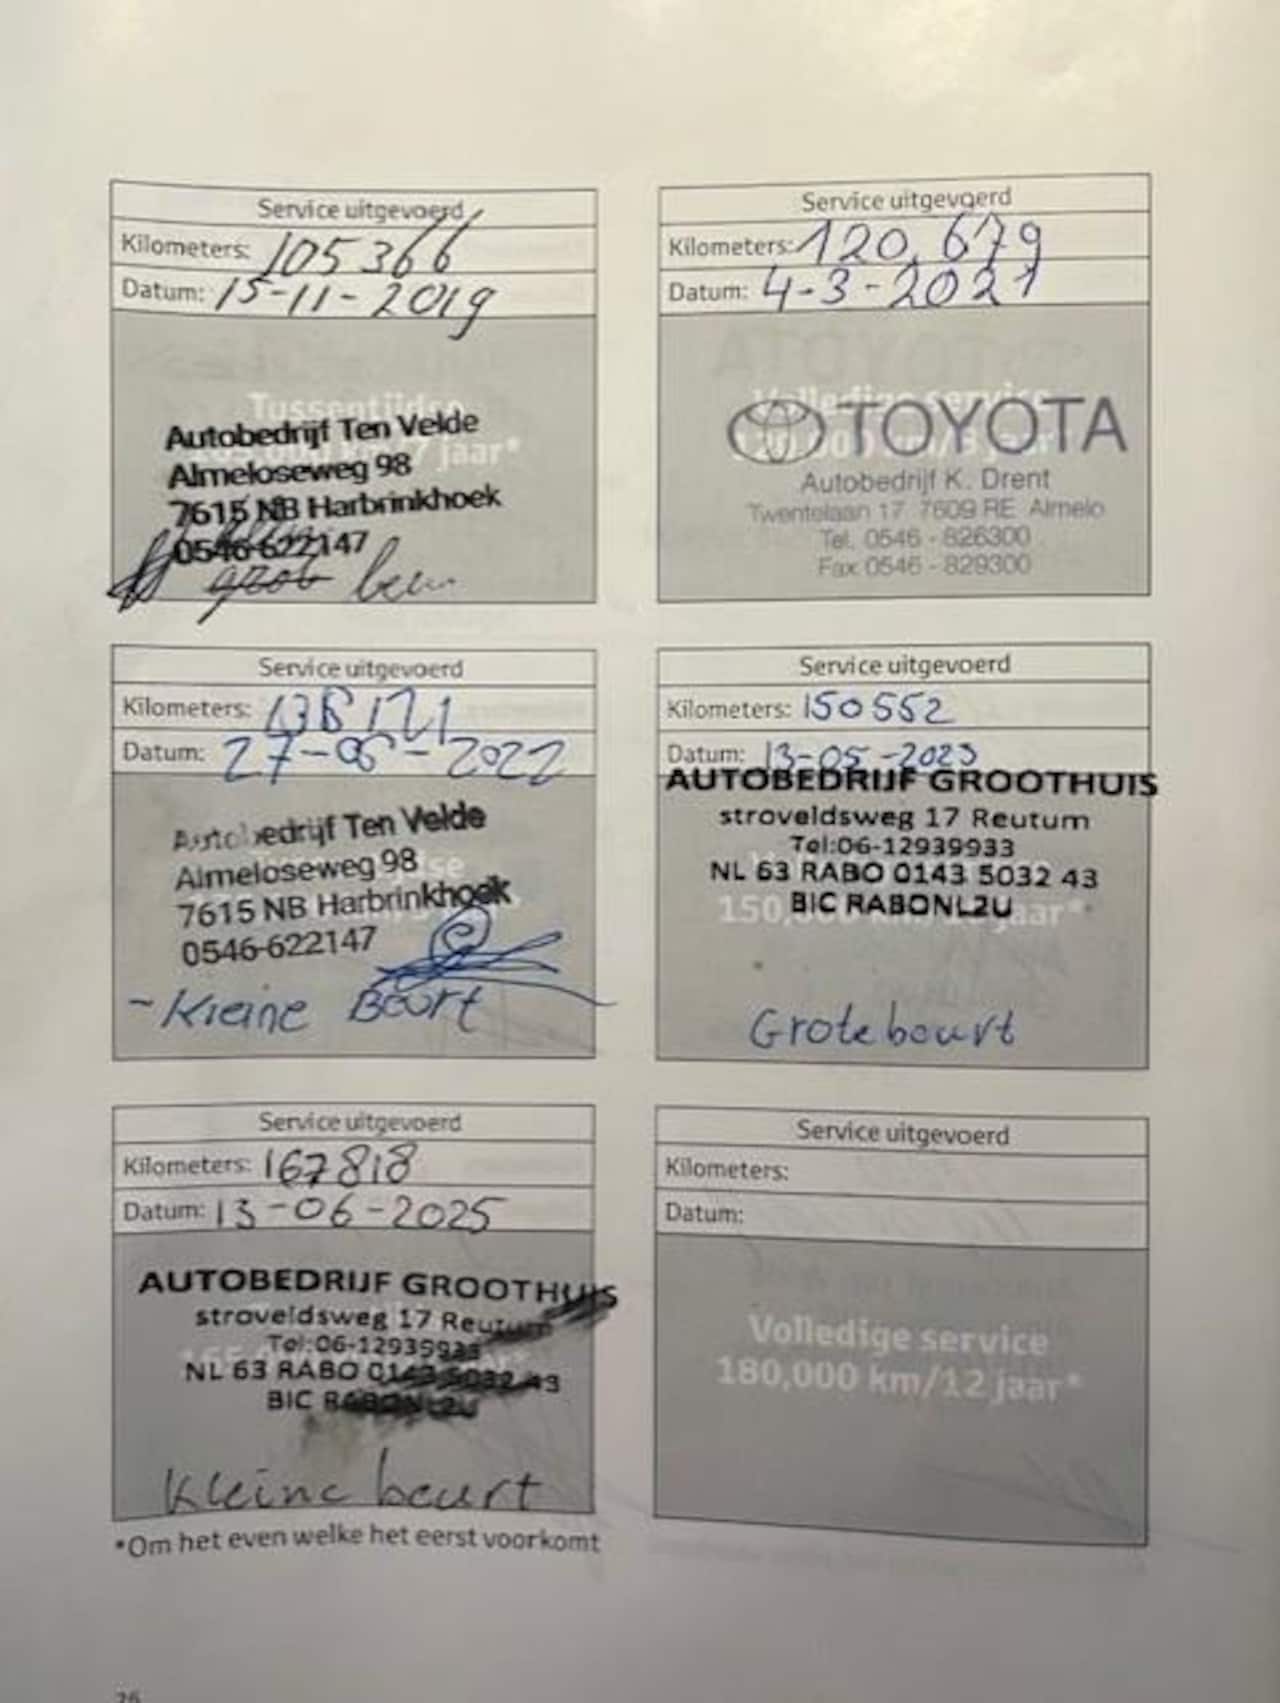 Service uitgevoerd
Kilometers: 105366
Datum: 15-11-2019
Tussentijdse
jaar*
Autobedrijf Ten Velde
Almeloseweg 98
7615 NB Harbrinkhoek
0546-622147
Service uitgevoerd
Kilometers: 120.679
Datum: 4-3-2021
Volledige service
120,000 km/8 jaar*
TOYOTA
Autobedrijf K. Drent
Twentelaan 17 7609 RE Almelo
Tel. 0546 - 826300
Fax 0546 - 829300
Service uitgevoerd
Kilometers: 138121
Datum: 27-05-2022
Autobedrijf Ten Velde
Almeloseweg 98
7615 NB Harbrinkhoek
0546-622147
- Kleine Beurt
Service uitgevoerd
Kilometers: 150552
Datum: 13-05-2023
AUTOBEDRIJF GROOTHUIS
stroveldsweg 17 Reutum
Tel:06-12939933
NL 63 RABO 0143 5032 43
BIC RABONL2U
150,000 km/10 jaar*
Grote beurt
Service uitgevoerd
Kilometers: 167818
Datum: 13-06-2025
AUTOBEDRIJF GROOTHUIS
stroveldsweg 17 Reutum
Tel:06-12939933
NL 63 RABO 0143 5032 43
BIC RABONL2U
Kleine beurt
*Om het even welke het eerst voorkomt
Service uitgevoerd
Kilometers:
Datum:
Volledige service
180,000 km/12 jaar*
26